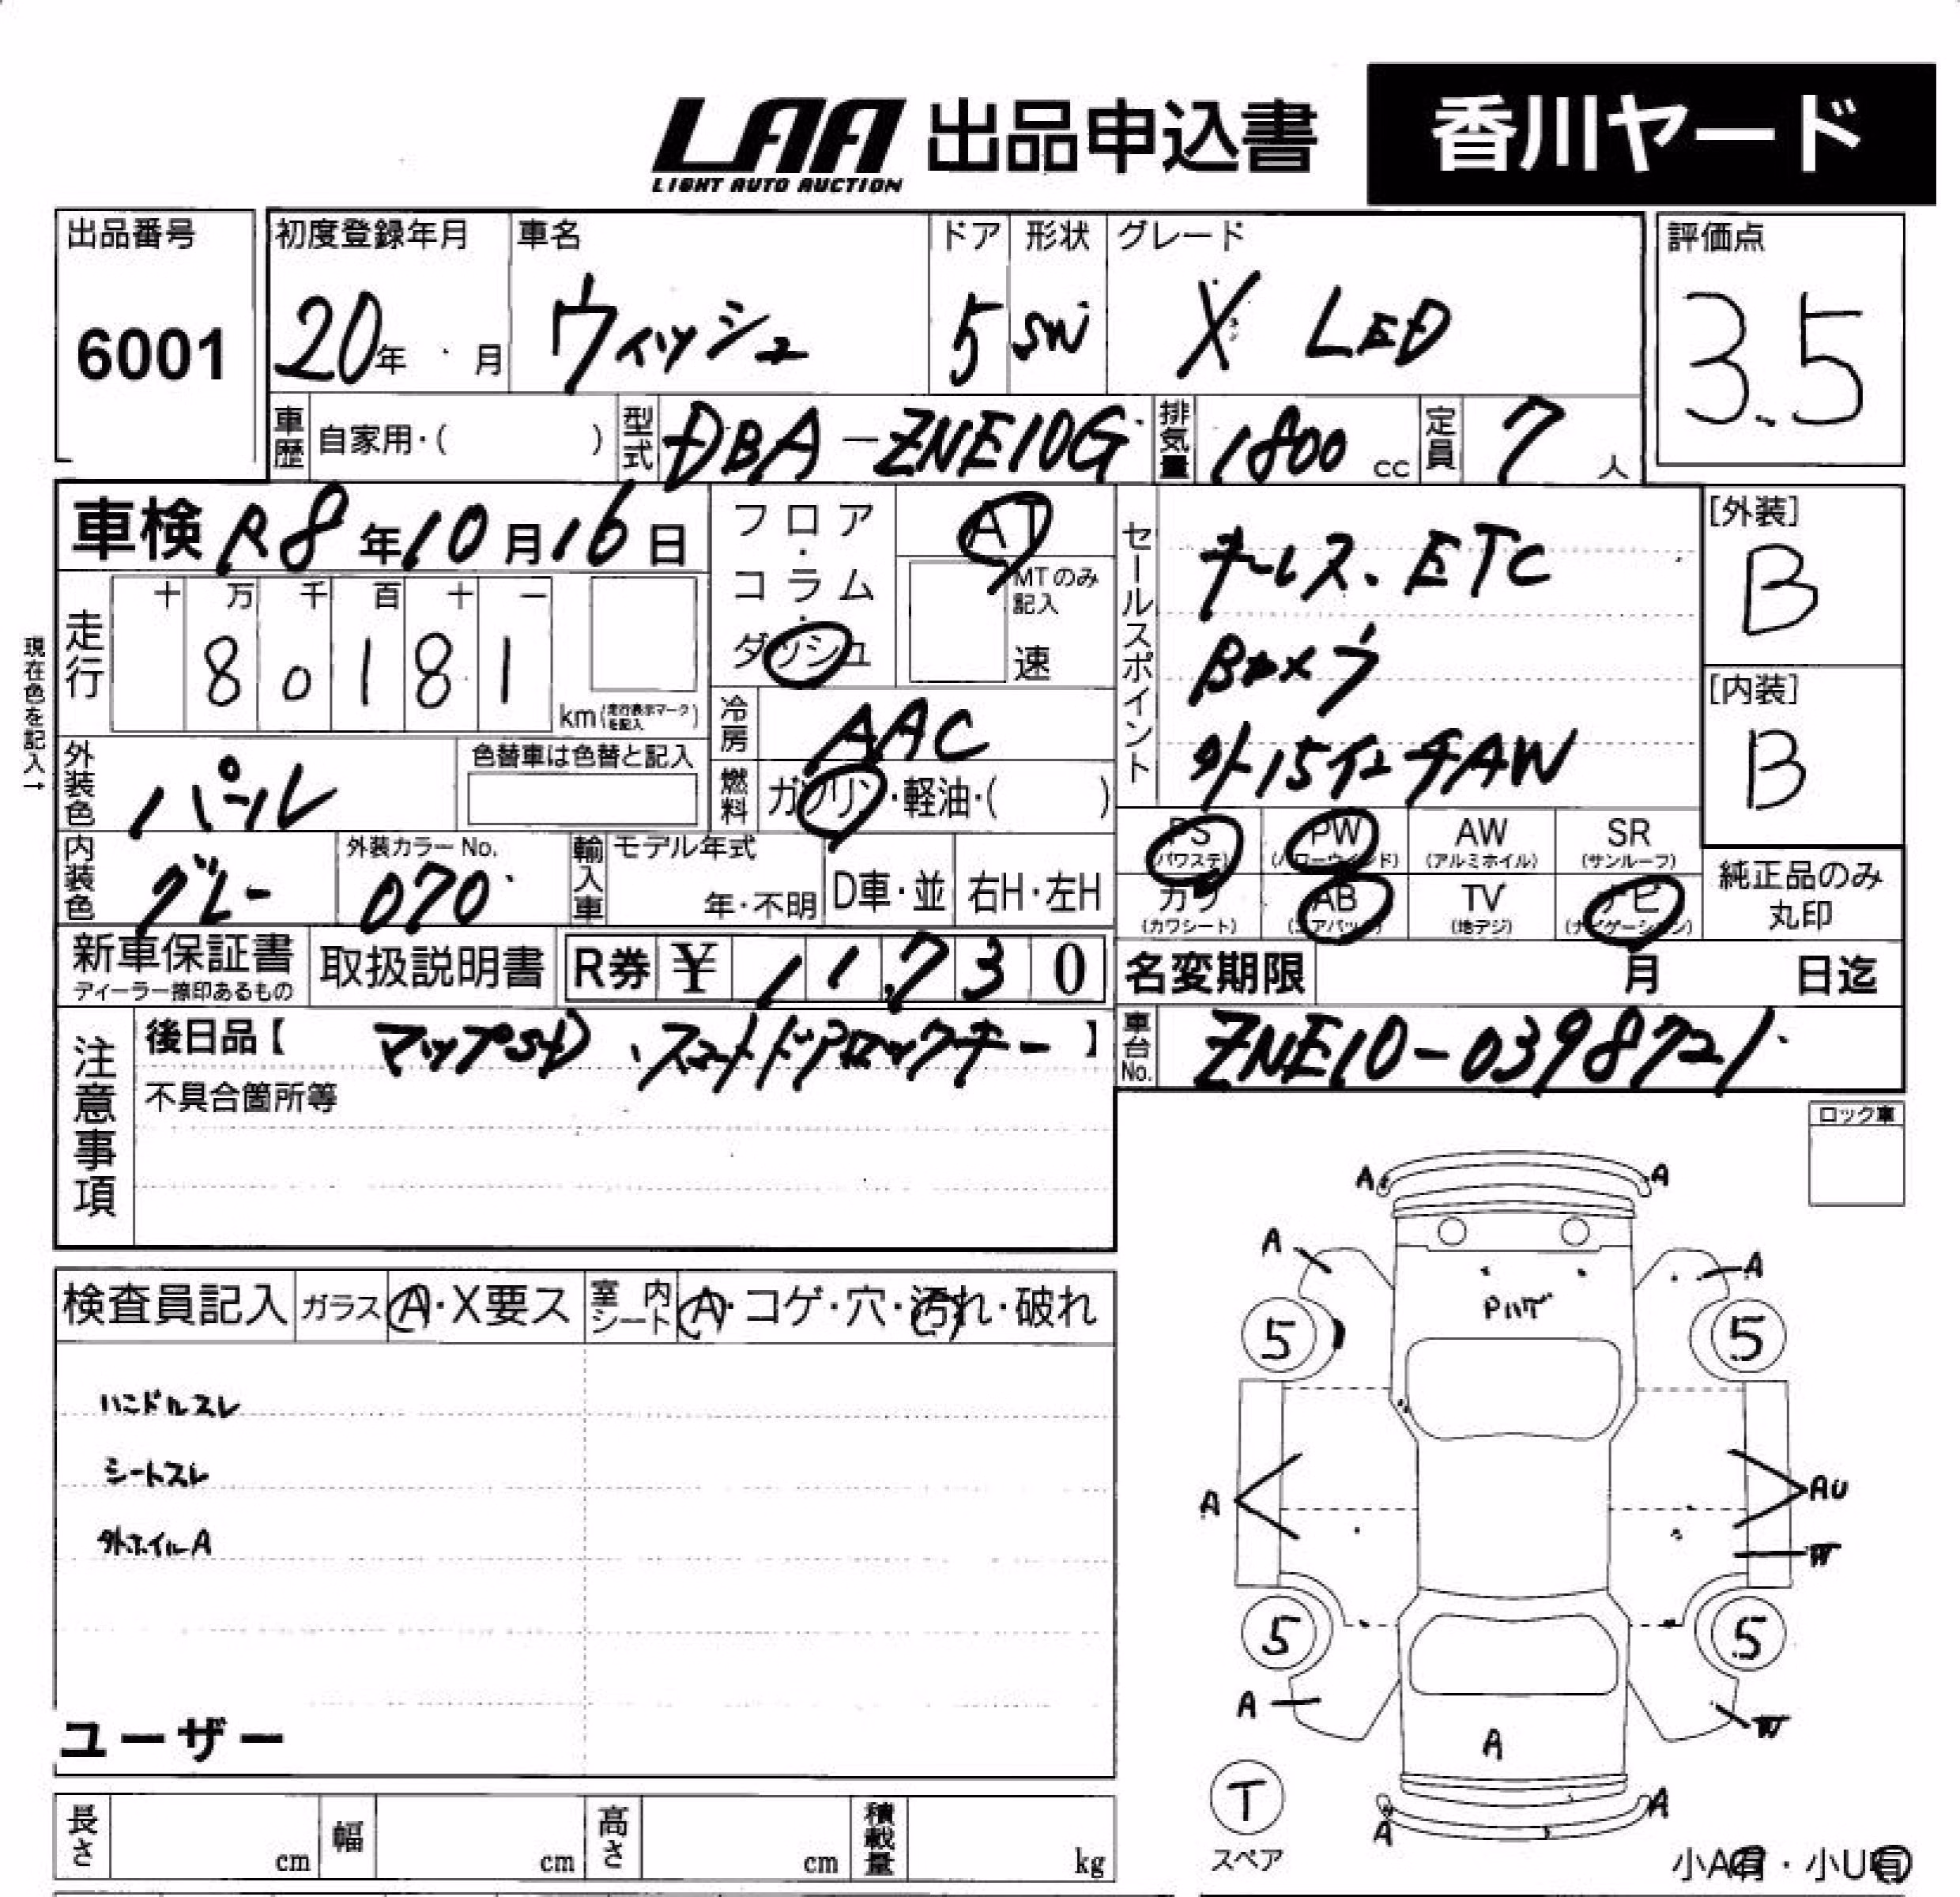 LAA 出品申込書 香川ヤード
LIGHT AUTO AUCTION
出品番号 初度登録年月 車名 ドア 形状 グレード 評価点
6001 20年 月 ウィッシュ 5 SW X LED 3.5
車歴 自家用・( ) 型式 DBA-ZNE10G 排気量 1800 cc 定員 7 人
車検 R8年10月16日
フロア・コラム・ダッシュ
AT
MTのみ記入
速
セールスポイント
キーレス、ETC
Bカメラ
外15インチAW
[外装]
B
[内装]
B
現在色を記入→
走行 十 万 千 百 十 一
8 0 1 8 1
km(走行表示マークを記入)
冷房 AAC
外装色 パール 色替車は色替と記入
燃料 ガソリン・軽油・( )
PS (パワステ) PW (パワーウィンド) AW (アルミホイル) SR (サンルーフ)
カワ (カワシート) AB (エアバッグ) TV (地デジ) ナビ (ナビゲーション)
純正品のみ
丸印
内装色 グレー 外装カラーNo. 070 輸入車 モデル年式 年・不明 D車・並 右H・左H
新車保証書 取扱説明書 R券 ¥ 11,730
ディーラー捺印あるもの
名変期限 月 日迄
注意事項
後日品【 マップSD、スマートドアロックキー 】
不具合箇所等
車台No. ZNE10-0398721
ロック車
検査員記入 ガラス A・X要ス 室内シート A・コゲ・穴・汚れ・破れ
ハンドルスレ
シートスレ
外ホイルA
ユーザー
A A
A A
Pハゲ
5 5
A AU
W
5 5
A W
A
T
スペア
A A
小A有・小U有
長さ cm 幅 cm 高さ cm 積載量 kg